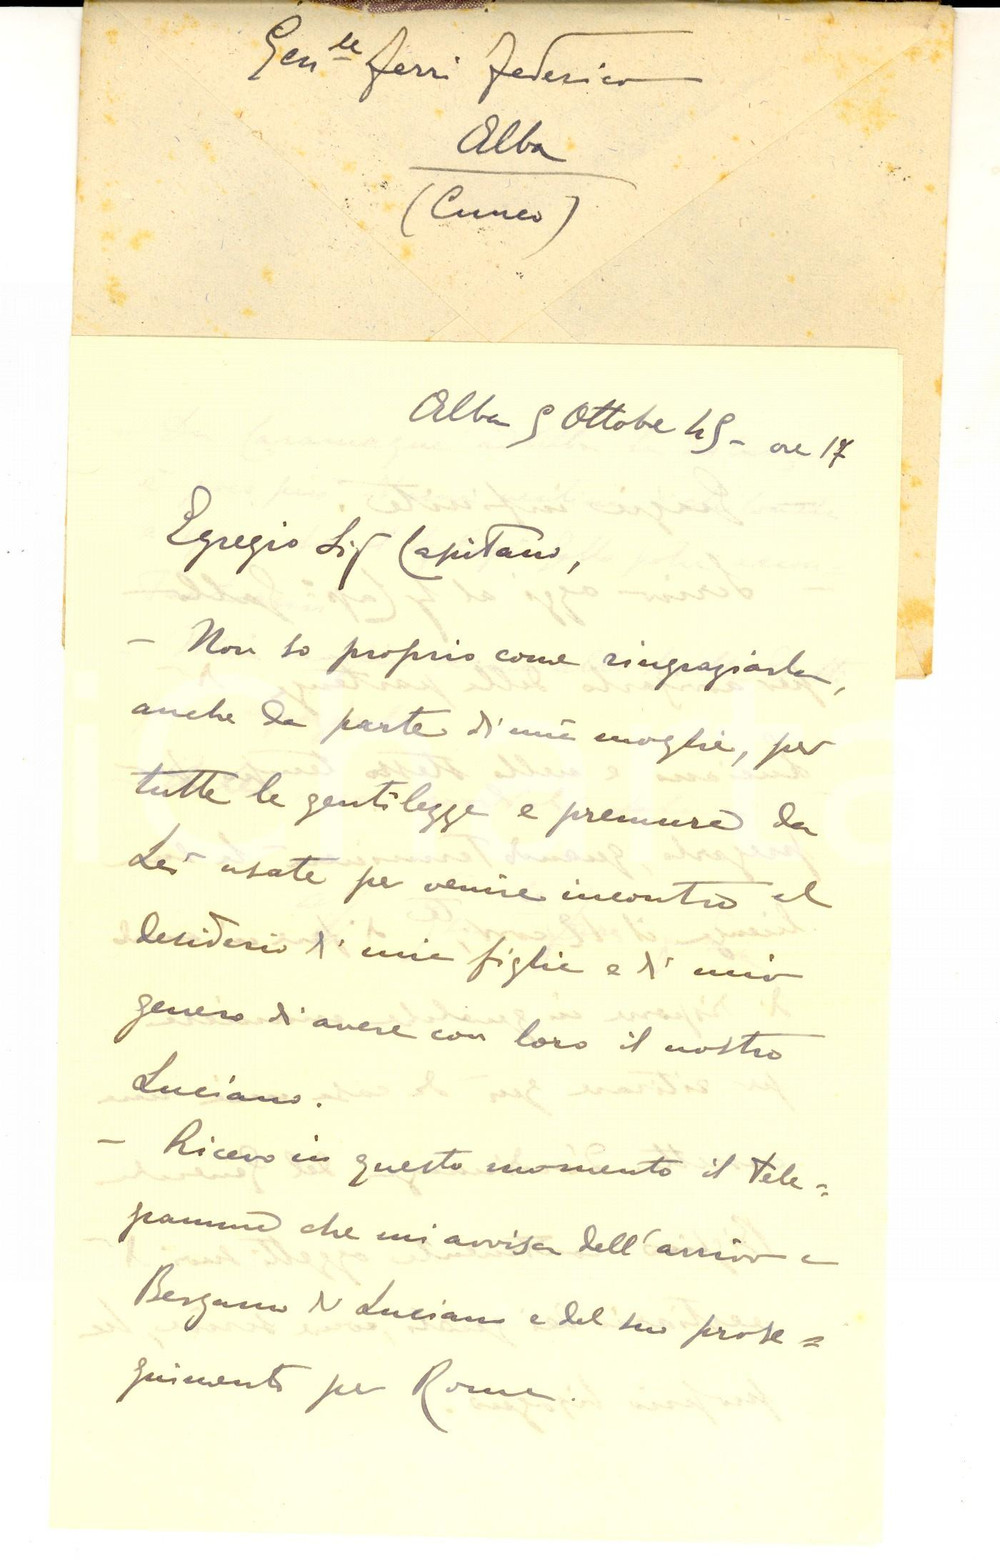 Gen.le Ferri Federico
Alba
(Cuneo)
Alba 5 Ottobre 45 - ore 17
Egregio Sig Capitano,
- Non so proprio come ringraziarla,
anche da parte di mia moglie, per
tutte le gentilezze e premure da
Lei usate per venire incontro al
desiderio di mia figlia e di mio
genero di avere con loro il nostro
Luciano.
- Ricevo in questo momento il tele=
gramma che mi avvisa dell'arrivo a
Bergamo di Luciano e del suo prose=
guimento per Roma.